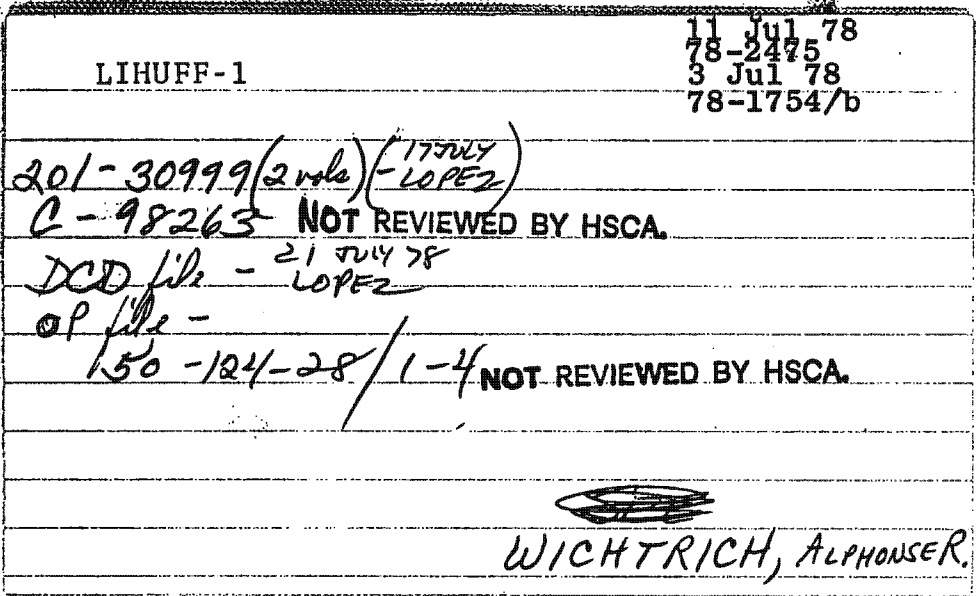 11 Jul 78
78-2475
3 Jul 78
78-1754/b
LIHUFF-1
201-30999 (2 vols) (17 JULY - LOPEZ)
C - 98263 - NOT REVIEWED BY HSCA.
DCD file - 21 JULY 78 LOPEZ
OP file -
150-124-28/1-4 NOT REVIEWED BY HSCA.
WICHTRICH, ALPHONSE R.